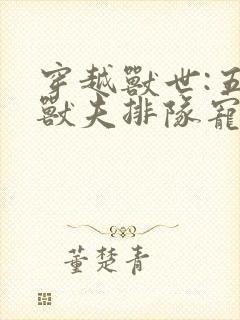 穿越獸世:五
獸夫排隊寵
董楚青